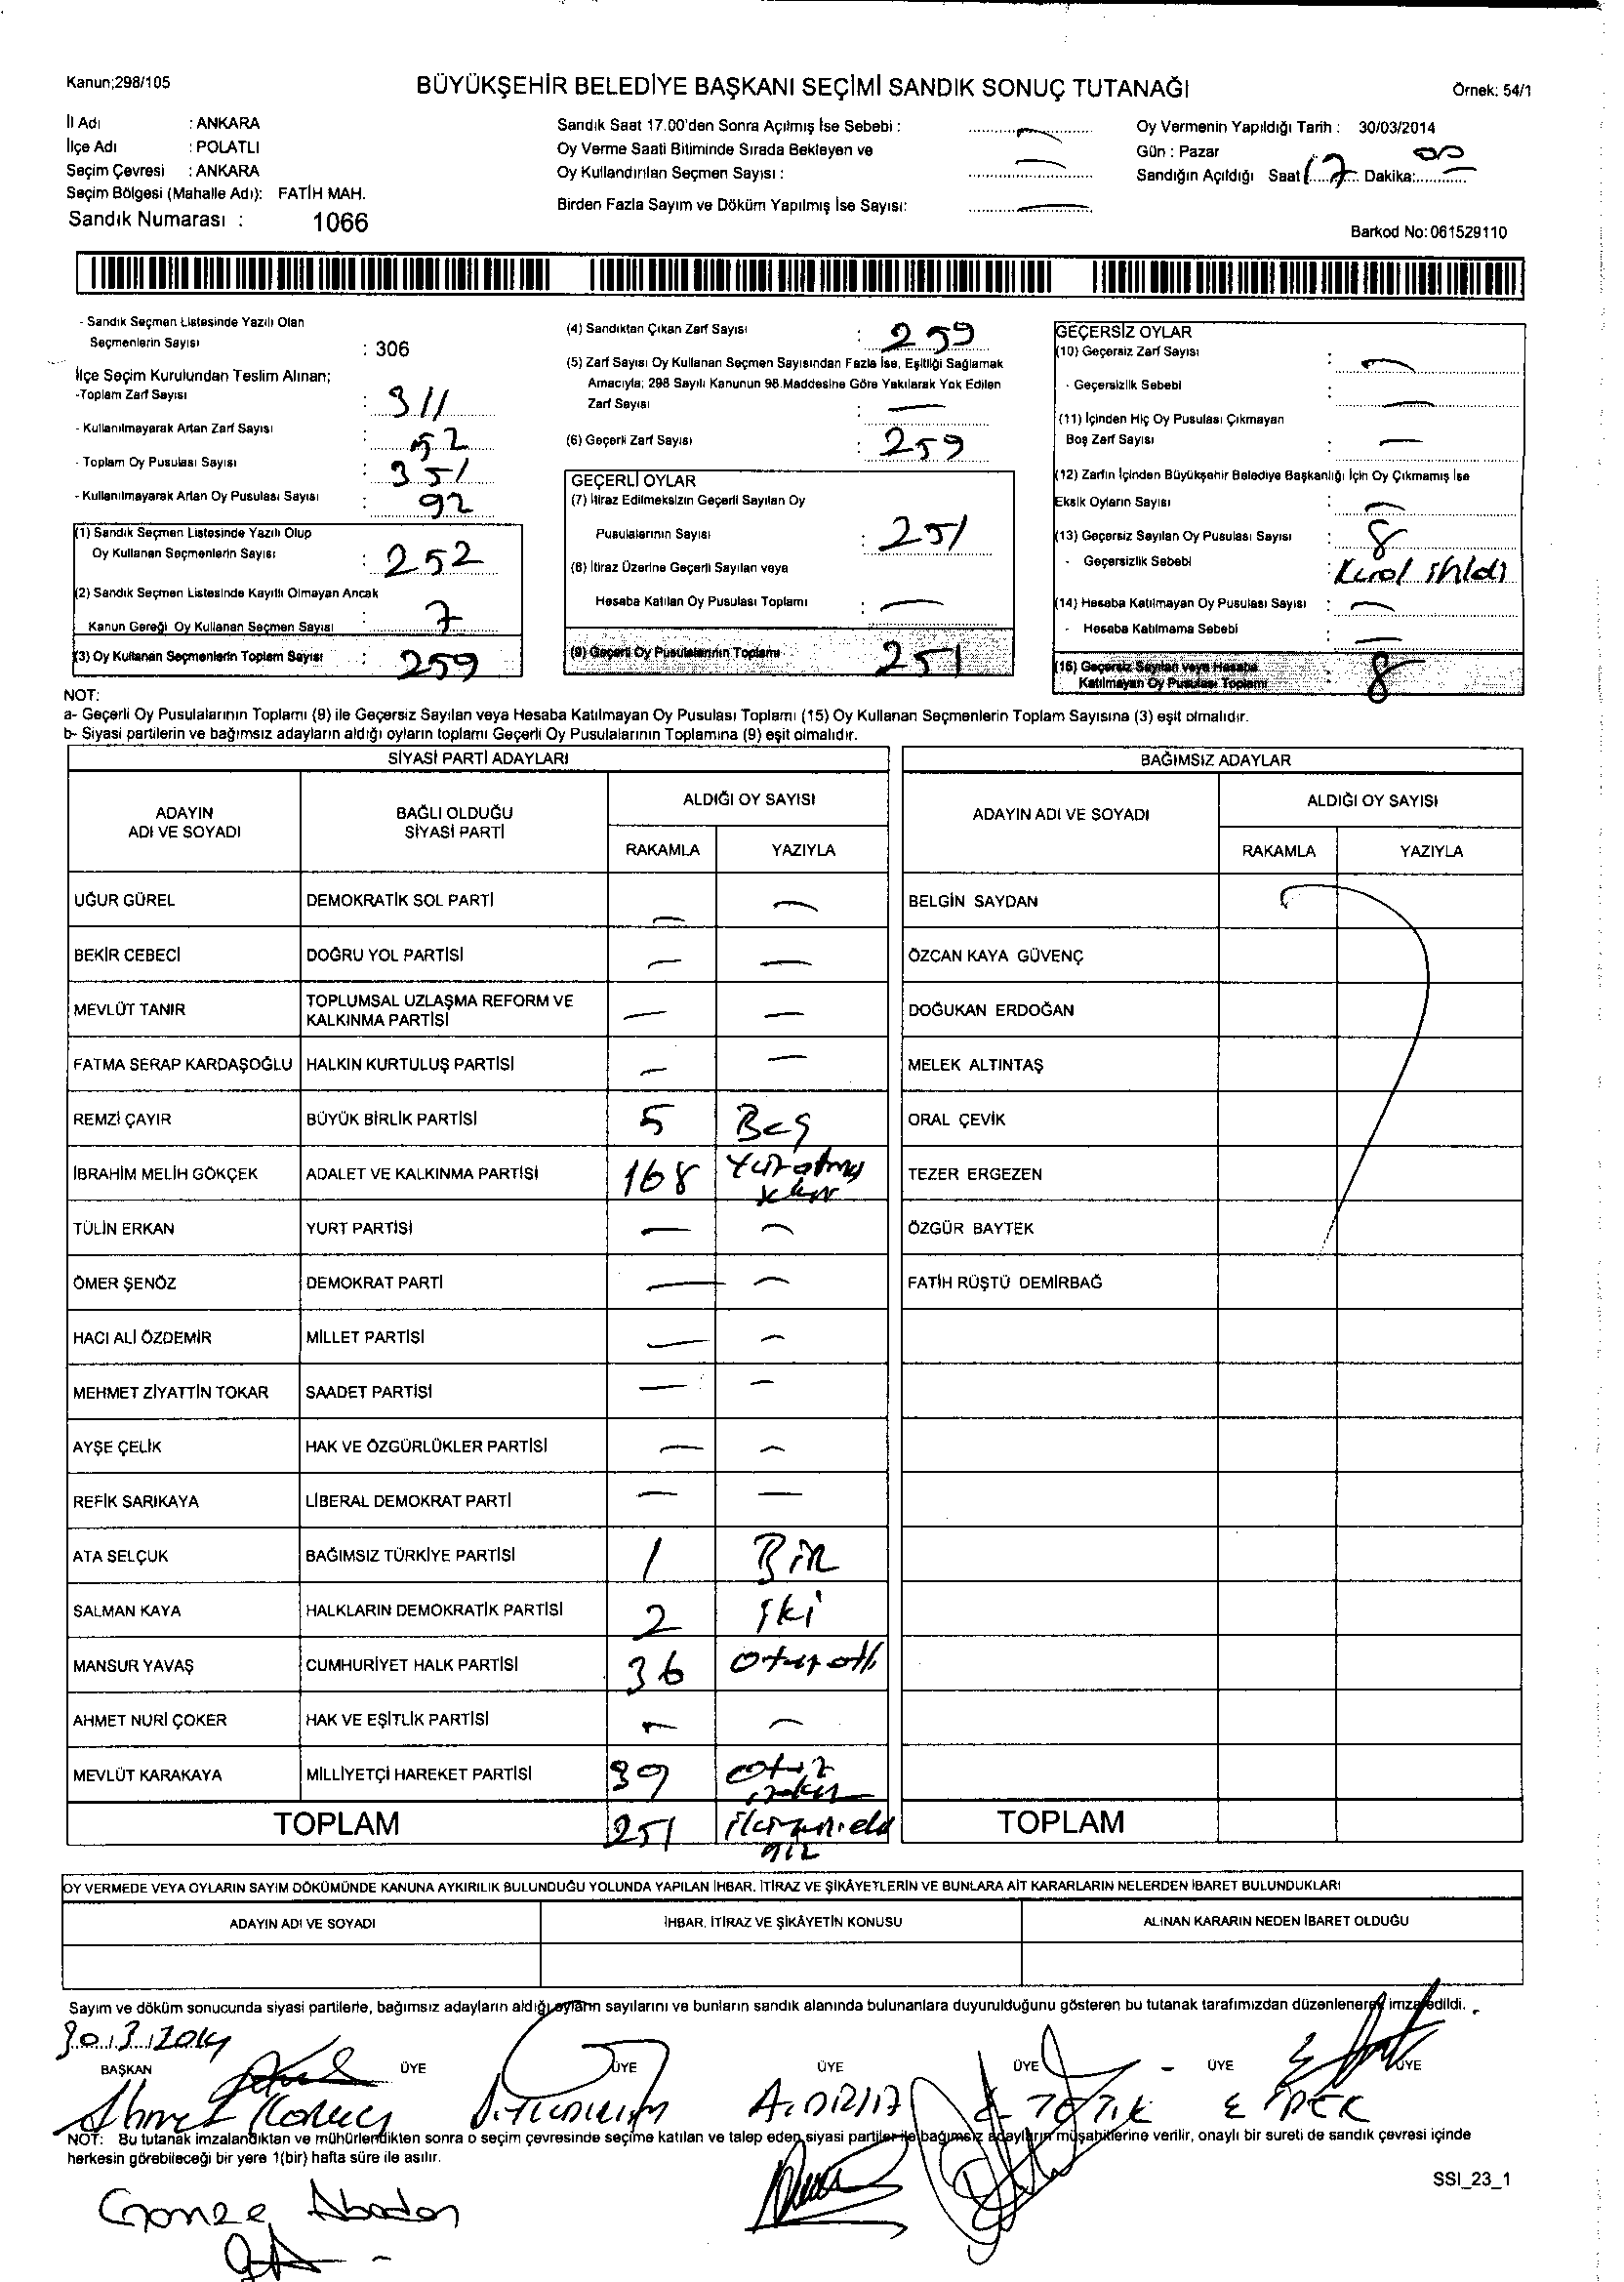 Kanun;298/105
BÜYÜKŞEHİR BELEDİYE BAŞKANI SEÇİMİ SANDIK SONUÇ TUTANAĞI
Örnek: 54/1
İl Adı : ANKARA
İlçe Adı : POLATLI
Seçim Çevresi : ANKARA
Seçim Bölgesi (Mahalle Adı): FATİH MAH.
Sandık Numarası : 1066
Sandık Saat 17.00'den Sonra Açılmış İse Sebebi :
Oy Verme Saati Bitiminde Sırada Bekleyen ve
Oy Kullandırılan Seçmen Sayısı :
Birden Fazla Sayım ve Döküm Yapılmış İse Sayısı:
Oy Vermenin Yapıldığı Tarih : 30/03/2014
Gün : Pazar
Sandığın Açıldığı Saat 17 Dakika: 00
Barkod No: 061529110
- Sandık Seçmen Listesinde Yazılı Olan
Seçmenlerin Sayısı : 306
İlçe Seçim Kurulundan Teslim Alınan;
-Toplam Zarf Sayısı : 311
- Kullanılmayarak Artan Zarf Sayısı : 52
- Toplam Oy Pusulası Sayısı : 351
- Kullanılmayarak Artan Oy Pusulası Sayısı : 92
(1) Sandık Seçmen Listesinde Yazılı Olup
Oy Kullanan Seçmenlerin Sayısı : 252
(2) Sandık Seçmen Listesinde Kayıtlı Olmayan Ancak
Kanun Gereği Oy Kullanan Seçmen Sayısı : 7
(3) Oy Kullanan Seçmenlerin Toplam Sayısı : 259
(4) Sandıktan Çıkan Zarf Sayısı : 259
(5) Zarf Sayısı Oy Kullanan Seçmen Sayısından Fazla İse, Eşitliği Sağlamak
Amacıyla; 298 Sayılı Kanunun 98.Maddesine Göre Yakılarak Yok Edilen
Zarf Sayısı : —
(6) Geçerli Zarf Sayısı : 259
GEÇERLİ OYLAR
(7) İtiraz Edilmeksizin Geçerli Sayılan Oy
Pusulalarının Sayısı : 251
(8) İtiraz Üzerine Geçerli Sayılan veya
Hesaba Katılan Oy Pusulası Toplamı : —
(9) Geçerli Oy Pusulalarının Toplamı 251
GEÇERSİZ OYLAR
(10) Geçersiz Zarf Sayısı : —
- Geçersizlik Sebebi : —
(11) İçinden Hiç Oy Pusulası Çıkmayan
Boş Zarf Sayısı : —
(12) Zarfın İçinden Büyükşehir Belediye Başkanlığı İçin Oy Çıkmamış İse
Eksik Oyların Sayısı : —
(13) Geçersiz Sayılan Oy Pusulası Sayısı : 8
- Geçersizlik Sebebi :
(14) Hesaba Katılmayan Oy Pusulası Sayısı : —
- Hesaba Katılmama Sebebi : —
(15) Geçersiz Sayılan veya Hesaba
Katılmayan Oy Pusulası Toplamı : 8
NOT:
a- Geçerli Oy Pusulalarının Toplamı (9) ile Geçersiz Sayılan veya Hesaba Katılmayan Oy Pusulası Toplamı (15) Oy Kullanan Seçmenlerin Toplam Sayısına (3) eşit olmalıdır.
b- Siyasi partilerin ve bağımsız adayların aldığı oyların toplamı Geçerli Oy Pusulalarının Toplamına (9) eşit olmalıdır.
SİYASİ PARTİ ADAYLARI
ADAYIN ADI VE SOYADI BAĞLI OLDUĞU SİYASİ PARTİ ALDIĞI OY SAYISI
RAKAMLA YAZIYLA
UĞUR GÜREL DEMOKRATİK SOL PARTİ — —
BEKİR CEBECİ DOĞRU YOL PARTİSİ — —
MEVLÜT TANIR TOPLUMSAL UZLAŞMA REFORM VE KALKINMA PARTİSİ — —
FATMA SERAP KARDAŞOĞLU HALKIN KURTULUŞ PARTİSİ — —
REMZİ ÇAYIR BÜYÜK BİRLİK PARTİSİ 5 Beş
İBRAHİM MELİH GÖKÇEK ADALET VE KALKINMA PARTİSİ 168
TÜLİN ERKAN YURT PARTİSİ — —
ÖMER ŞENÖZ DEMOKRAT PARTİ — —
HACI ALİ ÖZDEMİR MİLLET PARTİSİ — —
MEHMET ZİYATTİN TOKAR SAADET PARTİSİ — —
AYŞE ÇELİK HAK VE ÖZGÜRLÜKLER PARTİSİ — —
REFİK SARIKAYA LİBERAL DEMOKRAT PARTİ — —
ATA SELÇUK BAĞIMSIZ TÜRKİYE PARTİSİ 1 BİR
SALMAN KAYA HALKLARIN DEMOKRATİK PARTİSİ 2 iki
MANSUR YAVAŞ CUMHURİYET HALK PARTİSİ 36 Otuz altı
AHMET NURİ ÇOKER HAK VE EŞİTLİK PARTİSİ — —
MEVLÜT KARAKAYA MİLLİYETÇİ HAREKET PARTİSİ 39 otuz
TOPLAM 251
BAĞIMSIZ ADAYLAR
ADAYIN ADI VE SOYADI ALDIĞI OY SAYISI
RAKAMLA YAZIYLA
BELGİN SAYDAN
ÖZCAN KAYA GÜVENÇ
DOĞUKAN ERDOĞAN
MELEK ALTINTAŞ
ORAL ÇEVİK
TEZER ERGEZEN
ÖZGÜR BAYTEK
FATİH RÜŞTÜ DEMİRBAĞ
TOPLAM
OY VERMEDE VEYA OYLARIN SAYIM DÖKÜMÜNDE KANUNA AYKIRILIK BULUNDUĞU YOLUNDA YAPILAN İHBAR, İTİRAZ VE ŞİKÂYETLERİN VE BUNLARA AİT KARARLARIN NELERDEN İBARET BULUNDUKLARI
ADAYIN ADI VE SOYADI İHBAR, İTİRAZ VE ŞİKÂYETİN KONUSU ALINAN KARARIN NEDEN İBARET OLDUĞU
Sayım ve döküm sonucunda siyasi partilerle, bağımsız adayların aldığı oyların sayılarını ve bunların sandık alanında bulunanlara duyurulduğunu gösteren bu tutanak tarafımızdan düzenlenerek imza edildi.
30.3.2014
BAŞKAN ÜYE ÜYE ÜYE ÜYE ÜYE ÜYE
Ahmet
NOT: Bu tutanak imzalandıktan ve mühürlendikten sonra o seçim çevresinde seçime katılan ve talep eden siyasi partiler ile bağımsız adayların müşahitlerine verilir, onaylı bir sureti de sandık çevresi içinde
herkesin görebileceği bir yere 1(bir) hafta süre ile asılır.
SSI_23_1